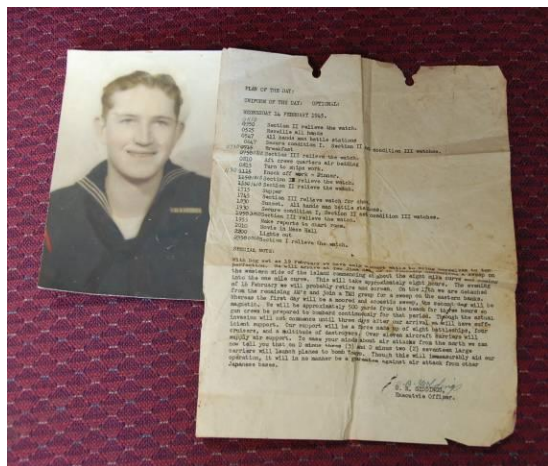 PLAN OF THE DAY:
UNIFORM OF THE DAY: OPTIONAL:
WEDNESDAY 14 FEBRUARY 1945.
Section II relieve the watch.
0525 Reveille All hands
0547 All hands man battle stations
Secure condition I. Section II condition III watches.
Breakfast
Section III relieve the watch.
0810 Aft crews quarters air bedding
0815 Turn to ships work.
1145 Knock off work - Dinner.
Section relieve the watch.
Section II relieve the watch.
1715 Supper
1745 Section III relieve watch for chow.
1830 Sunset. All hands man battle stations.
1930 Secure condition I, Section II set condition III watches.
Section III relieve the watch.
1955 Make reports to start room.
2010 Movie in Mess Hall
2200 Lights out
Section I relieve the watch.
SPECIAL NOTE:
the western side of the island commencing at about the eight mile curve and
into the one mile curve. This will take approximately eight hours. The evening
of 16 February we will probably retire and screen. On the 17th we are detached
from the remaining and join a group for a sweep on the eastern banks.
Whereas the first day will be a moored and acoustic sweep, the second day will be
magnetic. We will be approximately 500 yards from the beach for three hours so
gun crews be prepared to bombard continuously for that period. Though the actual
invasion will not commence until three days after our arrival we will have suffi-
cient support. Our support will be a force made up of eight battleships, four
cruisers, and a multitude of destroyers. Over sixteen aircraft carriers will
supply air support. To ease your minds about air attacks from the north we can
now tell you that on D minus three (3) and D minus two (2) seventeen large
carriers will launch planes to bomb Though this will immeasurably aid our
operation, it will in no manner be a guarantee against air attack from other
Japanese bases.
Executive Officer.